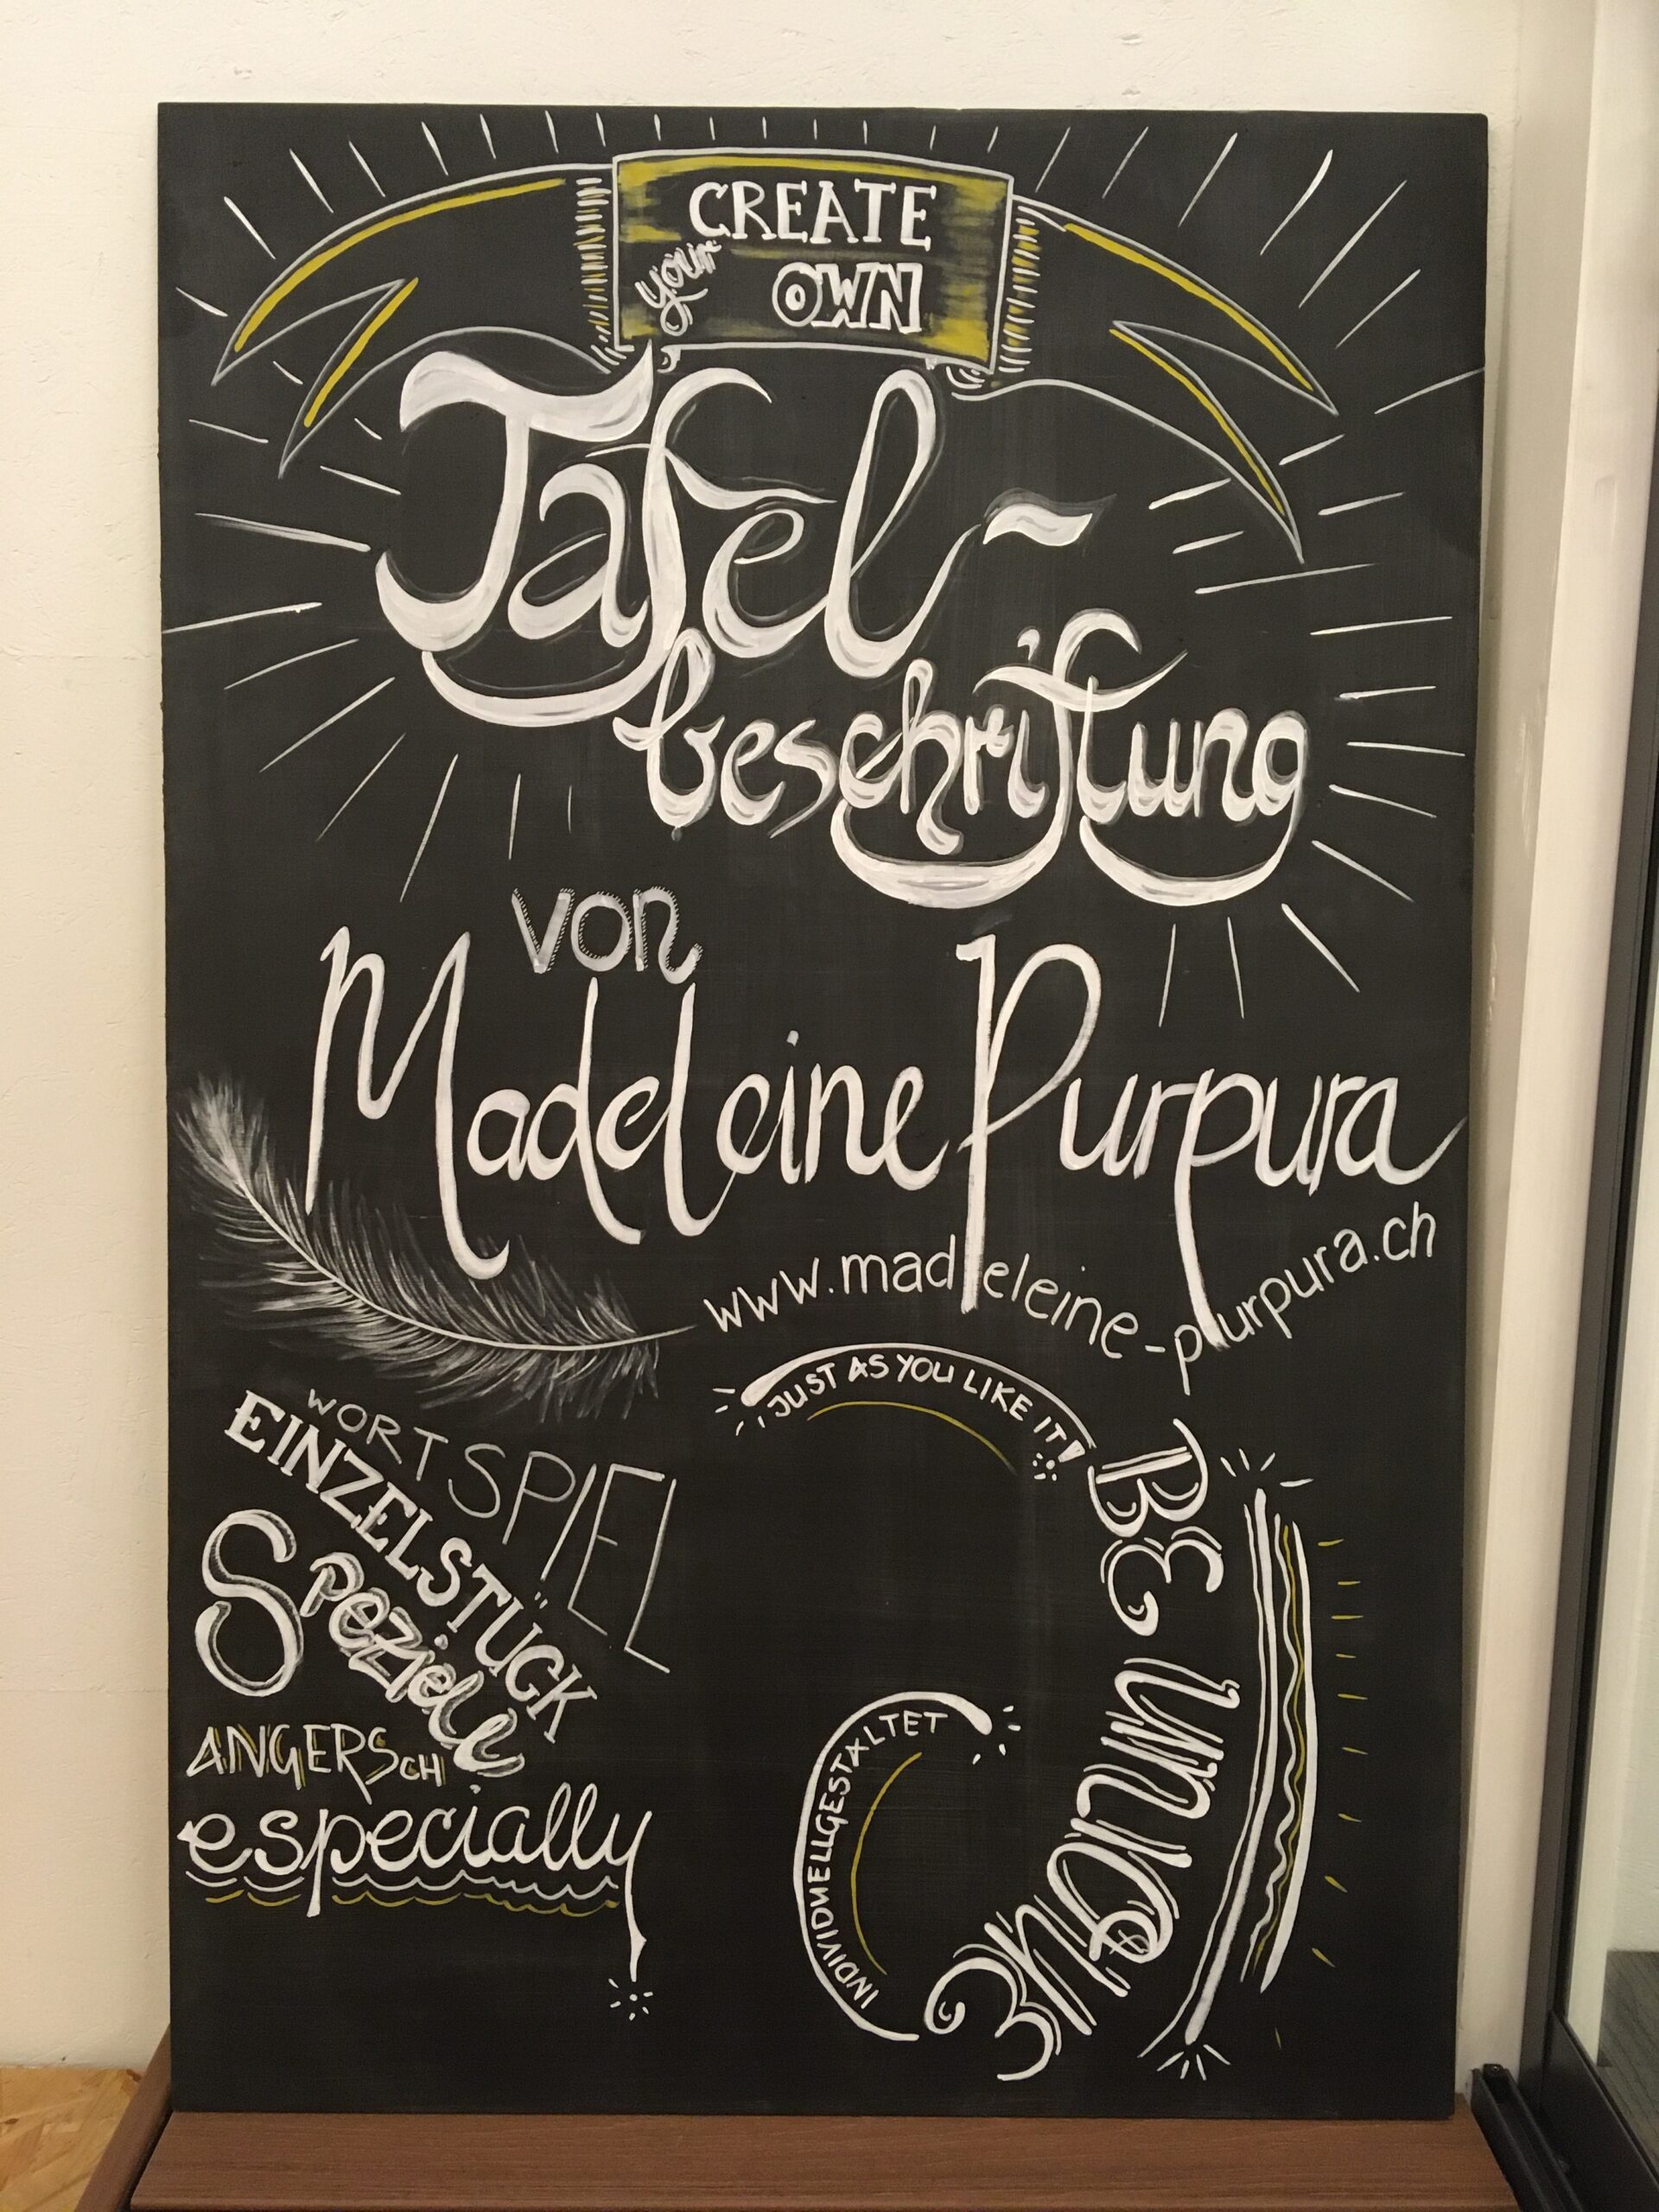 CREATE
your OWN
Tafel-
beschriftung
von
Madeleine Purpura
www.madeleine-purpura.ch
JUST AS YOU LIKE IT!
BE UNIQUE
INDIVIDUELLGESTALTET
WORTSPIEL
EINZELSTÜCK
Speziell
ANGERSCH
especially